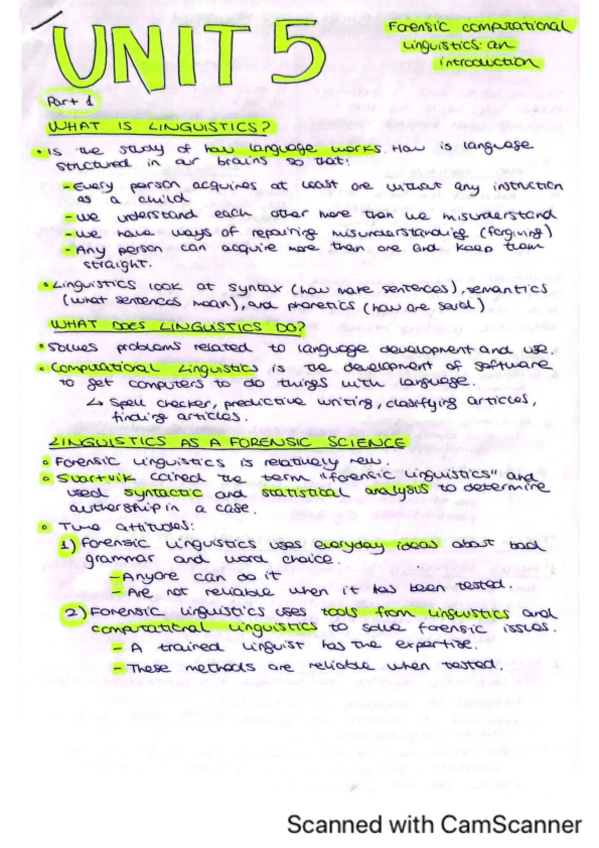 UNIT 5
Forensic computational
linguistics: an
introduction
Part 1
WHAT IS LINGUISTICS?
• Is the study of how language works. How is language
structured in our brains so that:
- Every person acquires at least one without any instruction
as a child
- we understand each other more than we misunderstand
- we have ways of repairing misunderstanding (forgiving)
- Any person can acquire more than one and keep them
straight.
• Linguistics look at syntax (how make sentences), semantics
(what sentences mean), and phonetics (how are said)
WHAT DOES LINGUISTICS DO?
• Solves problems related to language development and use.
• Computational Linguistics is the development of software
to get computers to do things with language.
↳ Spell checker, predictive writing, clasifying articles,
finding articles.
LINGUISTICS AS A FORENSIC SCIENCE
• Forensic linguistics is relatively new.
• Svartvik coined the term "forensic linguistics" and
used syntactic and statistical analysis to determine
authorship in a case.
• Two attitudes:
1) Forensic Linguistics uses everyday ideas about bad
grammar and word choice.
- Anyone can do it
- Are not reliable when it has been tested.
2) Forensic linguistics uses tools from linguistics and
computational linguistics to solve forensic issues.
- A trained linguist has the expertise.
- These methods are reliable when tested.
Scanned with CamScanner